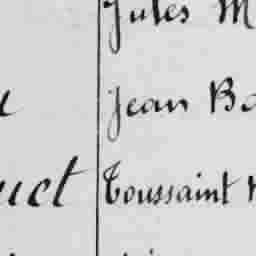 Jules M
Jean Ba
uct Toussaint